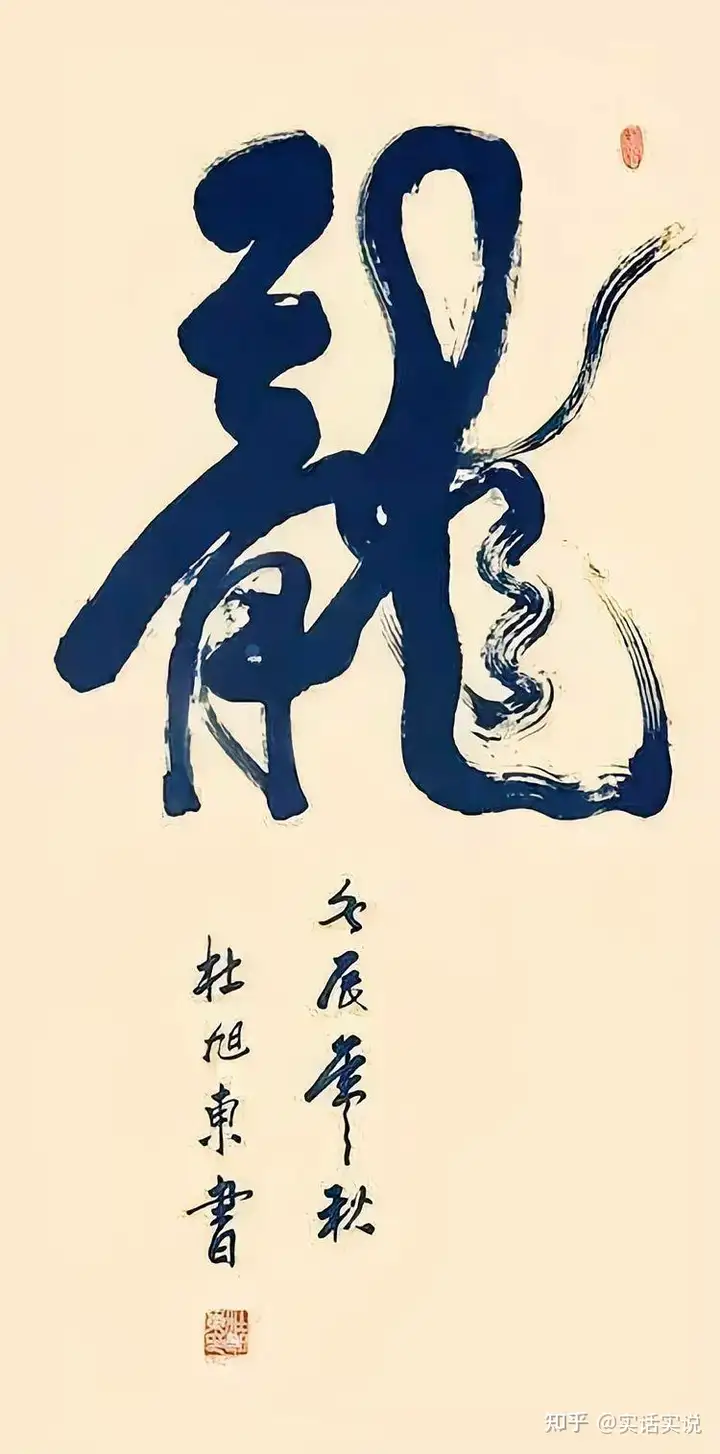 龍
壬辰年之秋
杜旭東書
知乎 @实话实说